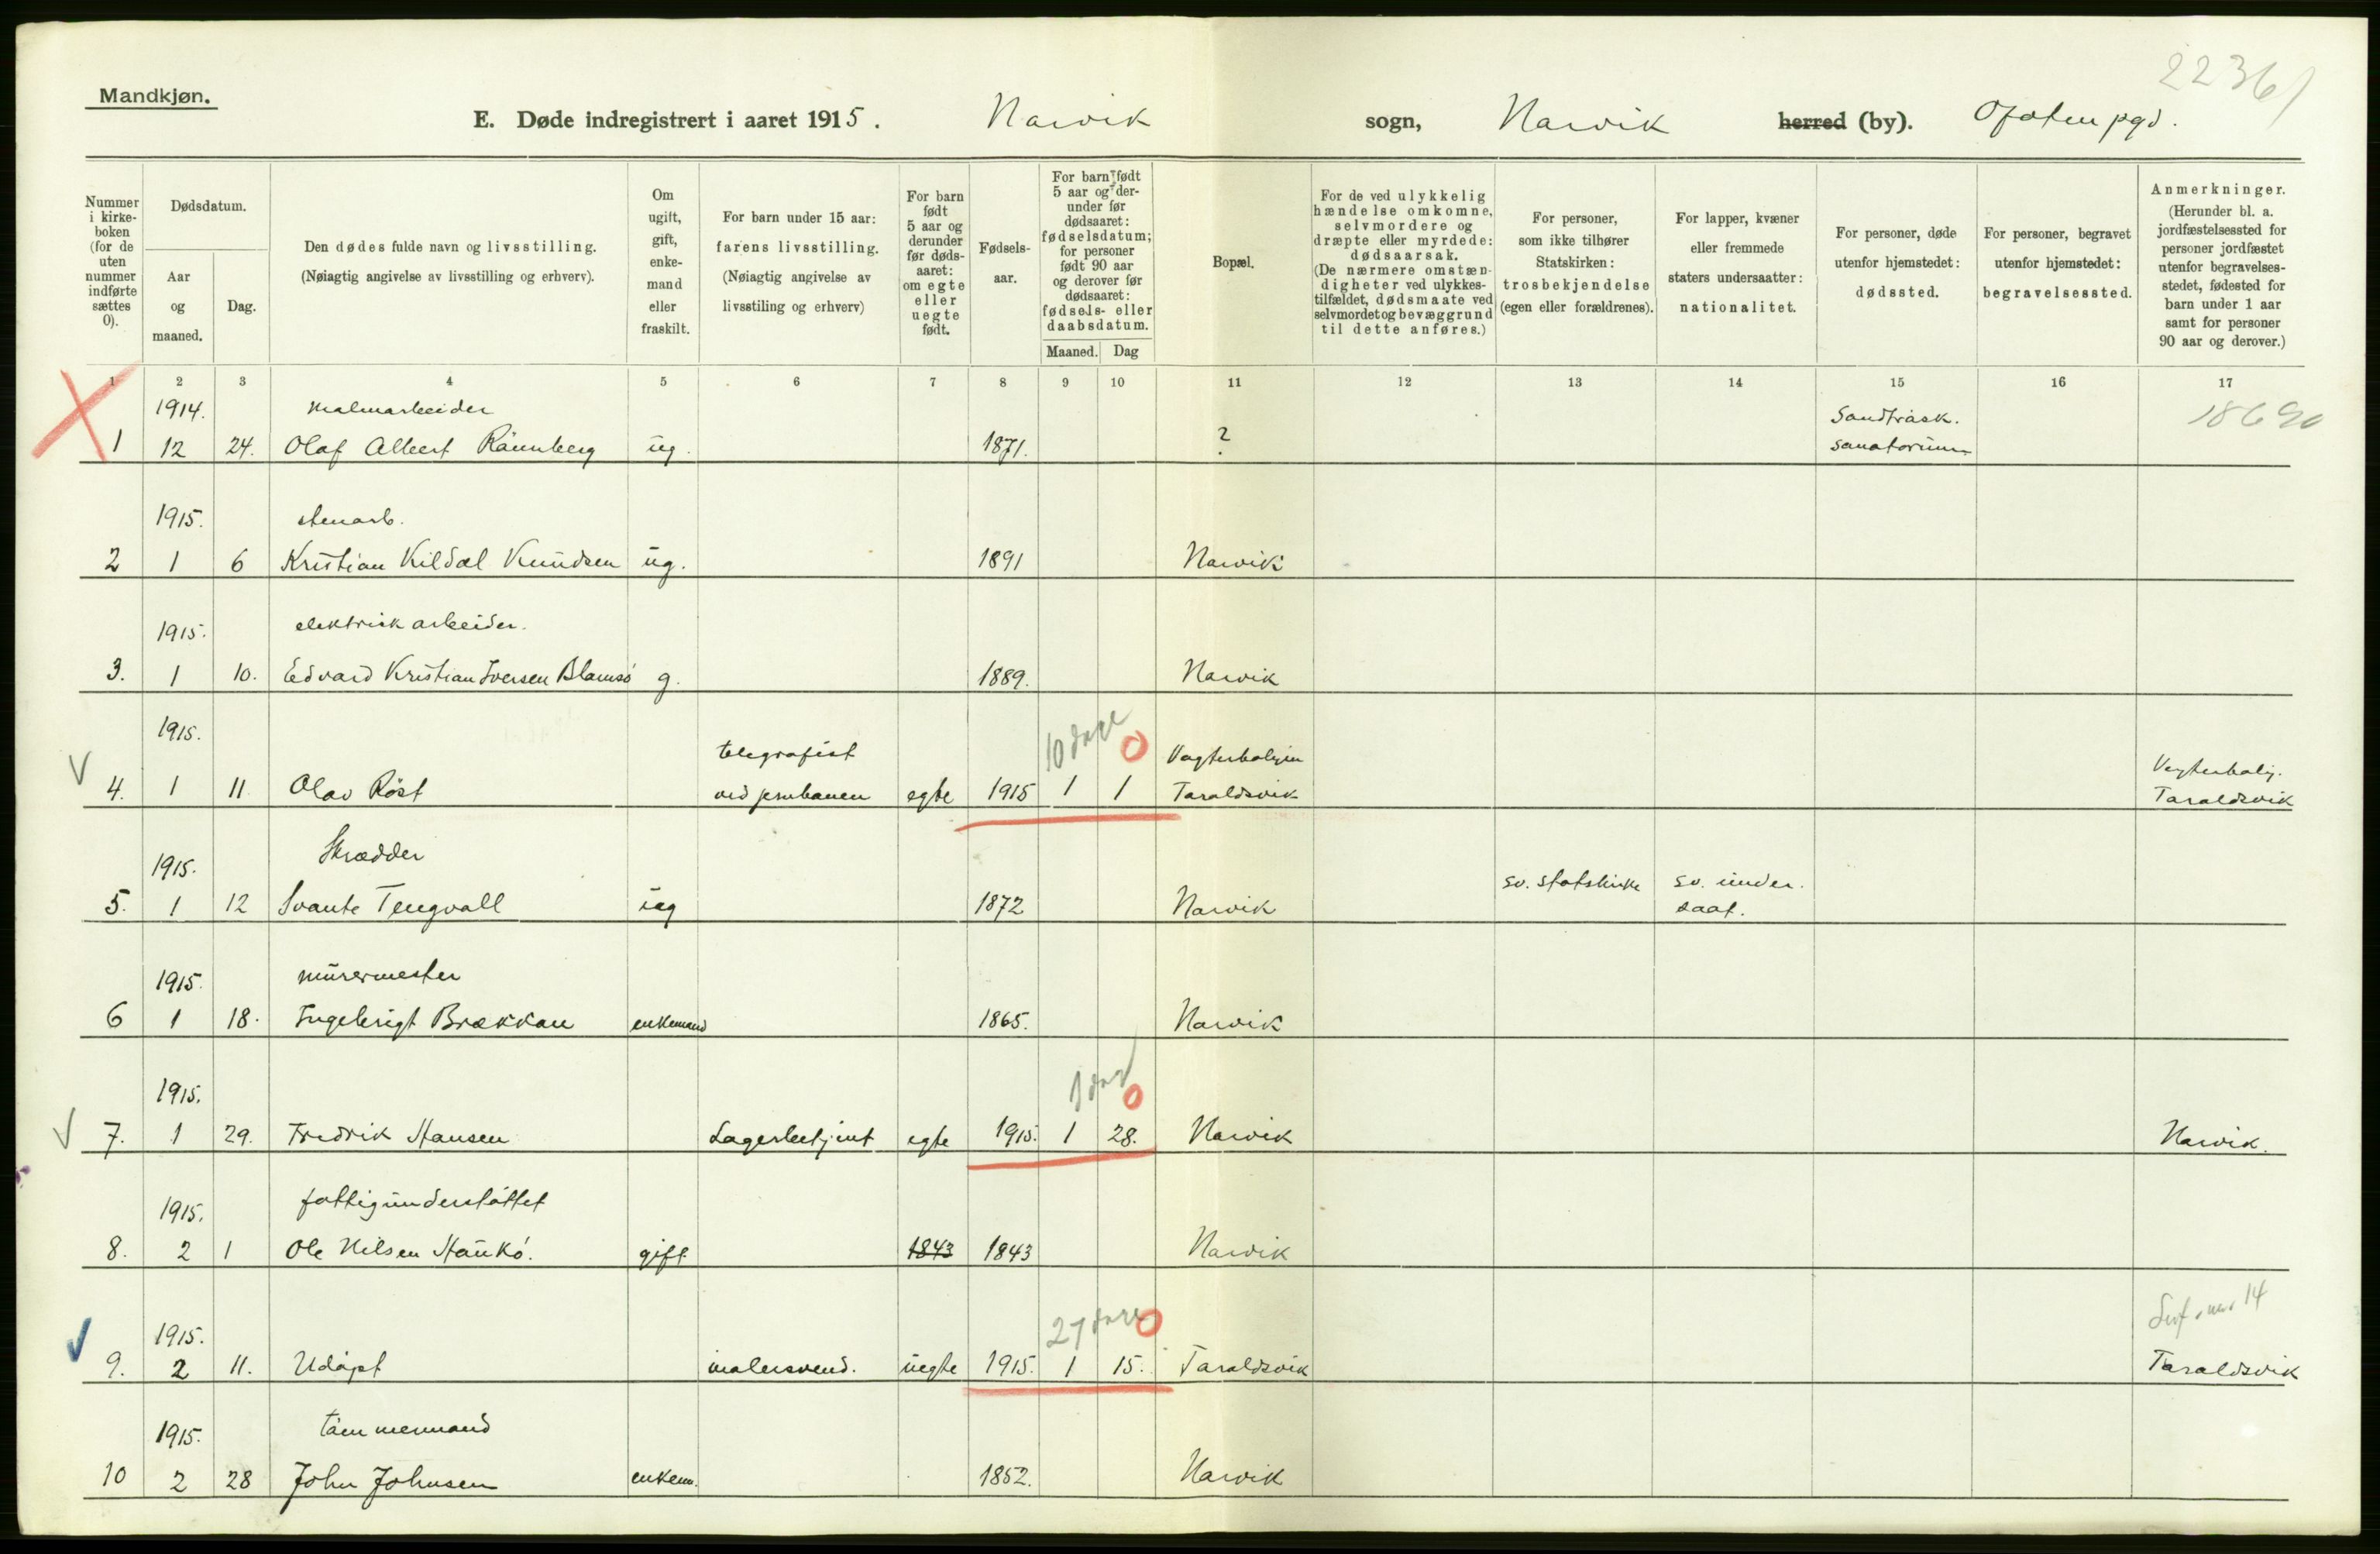 22361
Mandkjøn.
E. Døde indregistrert i aaret 1915. Narvik sogn, Narvik herred (by). Ofoten pgd.
Nummer i kirke-boken (for de uten nummer indførte sættes 0).
Dødsdatum.
Aar og maaned.
Dag.
Den dødes fulde navn og livsstilling.
(Nøiagtig angivelse av livsstilling og erhverv).
Om ugift, gift, enke-mand eller fraskilt.
For barn under 15 aar:
farens livsstilling.
(Nøiagtig angivelse av livsstiling og erhverv)
For barn født 5 aar og derunder før døds-aaret: om egte eller uegte født.
Fødsels-aar.
For barn født 5 aar og der-under før dødsaaret: fødselsdatum; for personer født 90 aar og derover før dødsaaret: fødsels- eller daabsdatum.
Maaned. Dag
Bopæl.
For de ved ulykkelig hændelse omkomne, selvmordere og dræpte eller myrdede: dødsaarsak.
(De nærmere omstæn-digheter ved ulykkes-tilfældet, dødsmaate ved selvmordet og bevæggrund til dette anføres.)
For personer, som ikke tilhører Statskirken: trosbekjendelse (egen eller forældrenes).
For lapper, kvæner eller fremmede staters undersaatter: nationalitet.
For personer, døde utenfor hjemstedet: dødssted.
For personer, begravet utenfor hjemstedet: begravelsessted.
Anmerkninger.
(Herunder bl. a. jordfæstelsessted for personer jordfæstet utenfor begravelses-stedet, fødested for barn under 1 aar samt for personer 90 aar og derover.)
1 2 3 4 5 6 7 8 9 10 11 12 13 14 15 16 17
1914. malmarbeider Sandträsk. 18690
1 12 24. Olaf Albert Rännberg ug. 1871. ? sanatorium
1915. stenarb.
2 1 6 Kristian Kildal Knudsen ug. 1891 Narvik
1915. elektrisk arbeider.
3. 1 10. Edvard Kristian Iversen Blamsö g. 1889. Narvik
1915. telegrafist 10 dage 0 Vagterboligen Vagterbolig.
4. 1 11. Olav Röst ved jernbanen egte 1915 1 1 Taraldsvik Taraldsvik
1915. Skrædder sv. statskirke sv. under.
5. 1 12 Svante Tengvall ug 1872 Narvik saat.
1915. murermester
6 1 18. Ingebrigt Brækkan enkemand 1865. Narvik
1915. 1 dag 0
7. 1 29. Fredrik Hansen Lagerbetjent egte 1915. 1 28. Narvik Narvik.
1915. fattigunderstøttet
8. 2 1 Ole Nilsen Haukø. gift 1843 1843 Narvik
1915. 27 dage 0 nr. 14
9. 2 11. Udøpt malersvend. uegte 1915. 1 15. Taraldsvik Taraldsvik
1915. tømmermand
10 2 28 John Johnsen enkem. 1852. Narvik